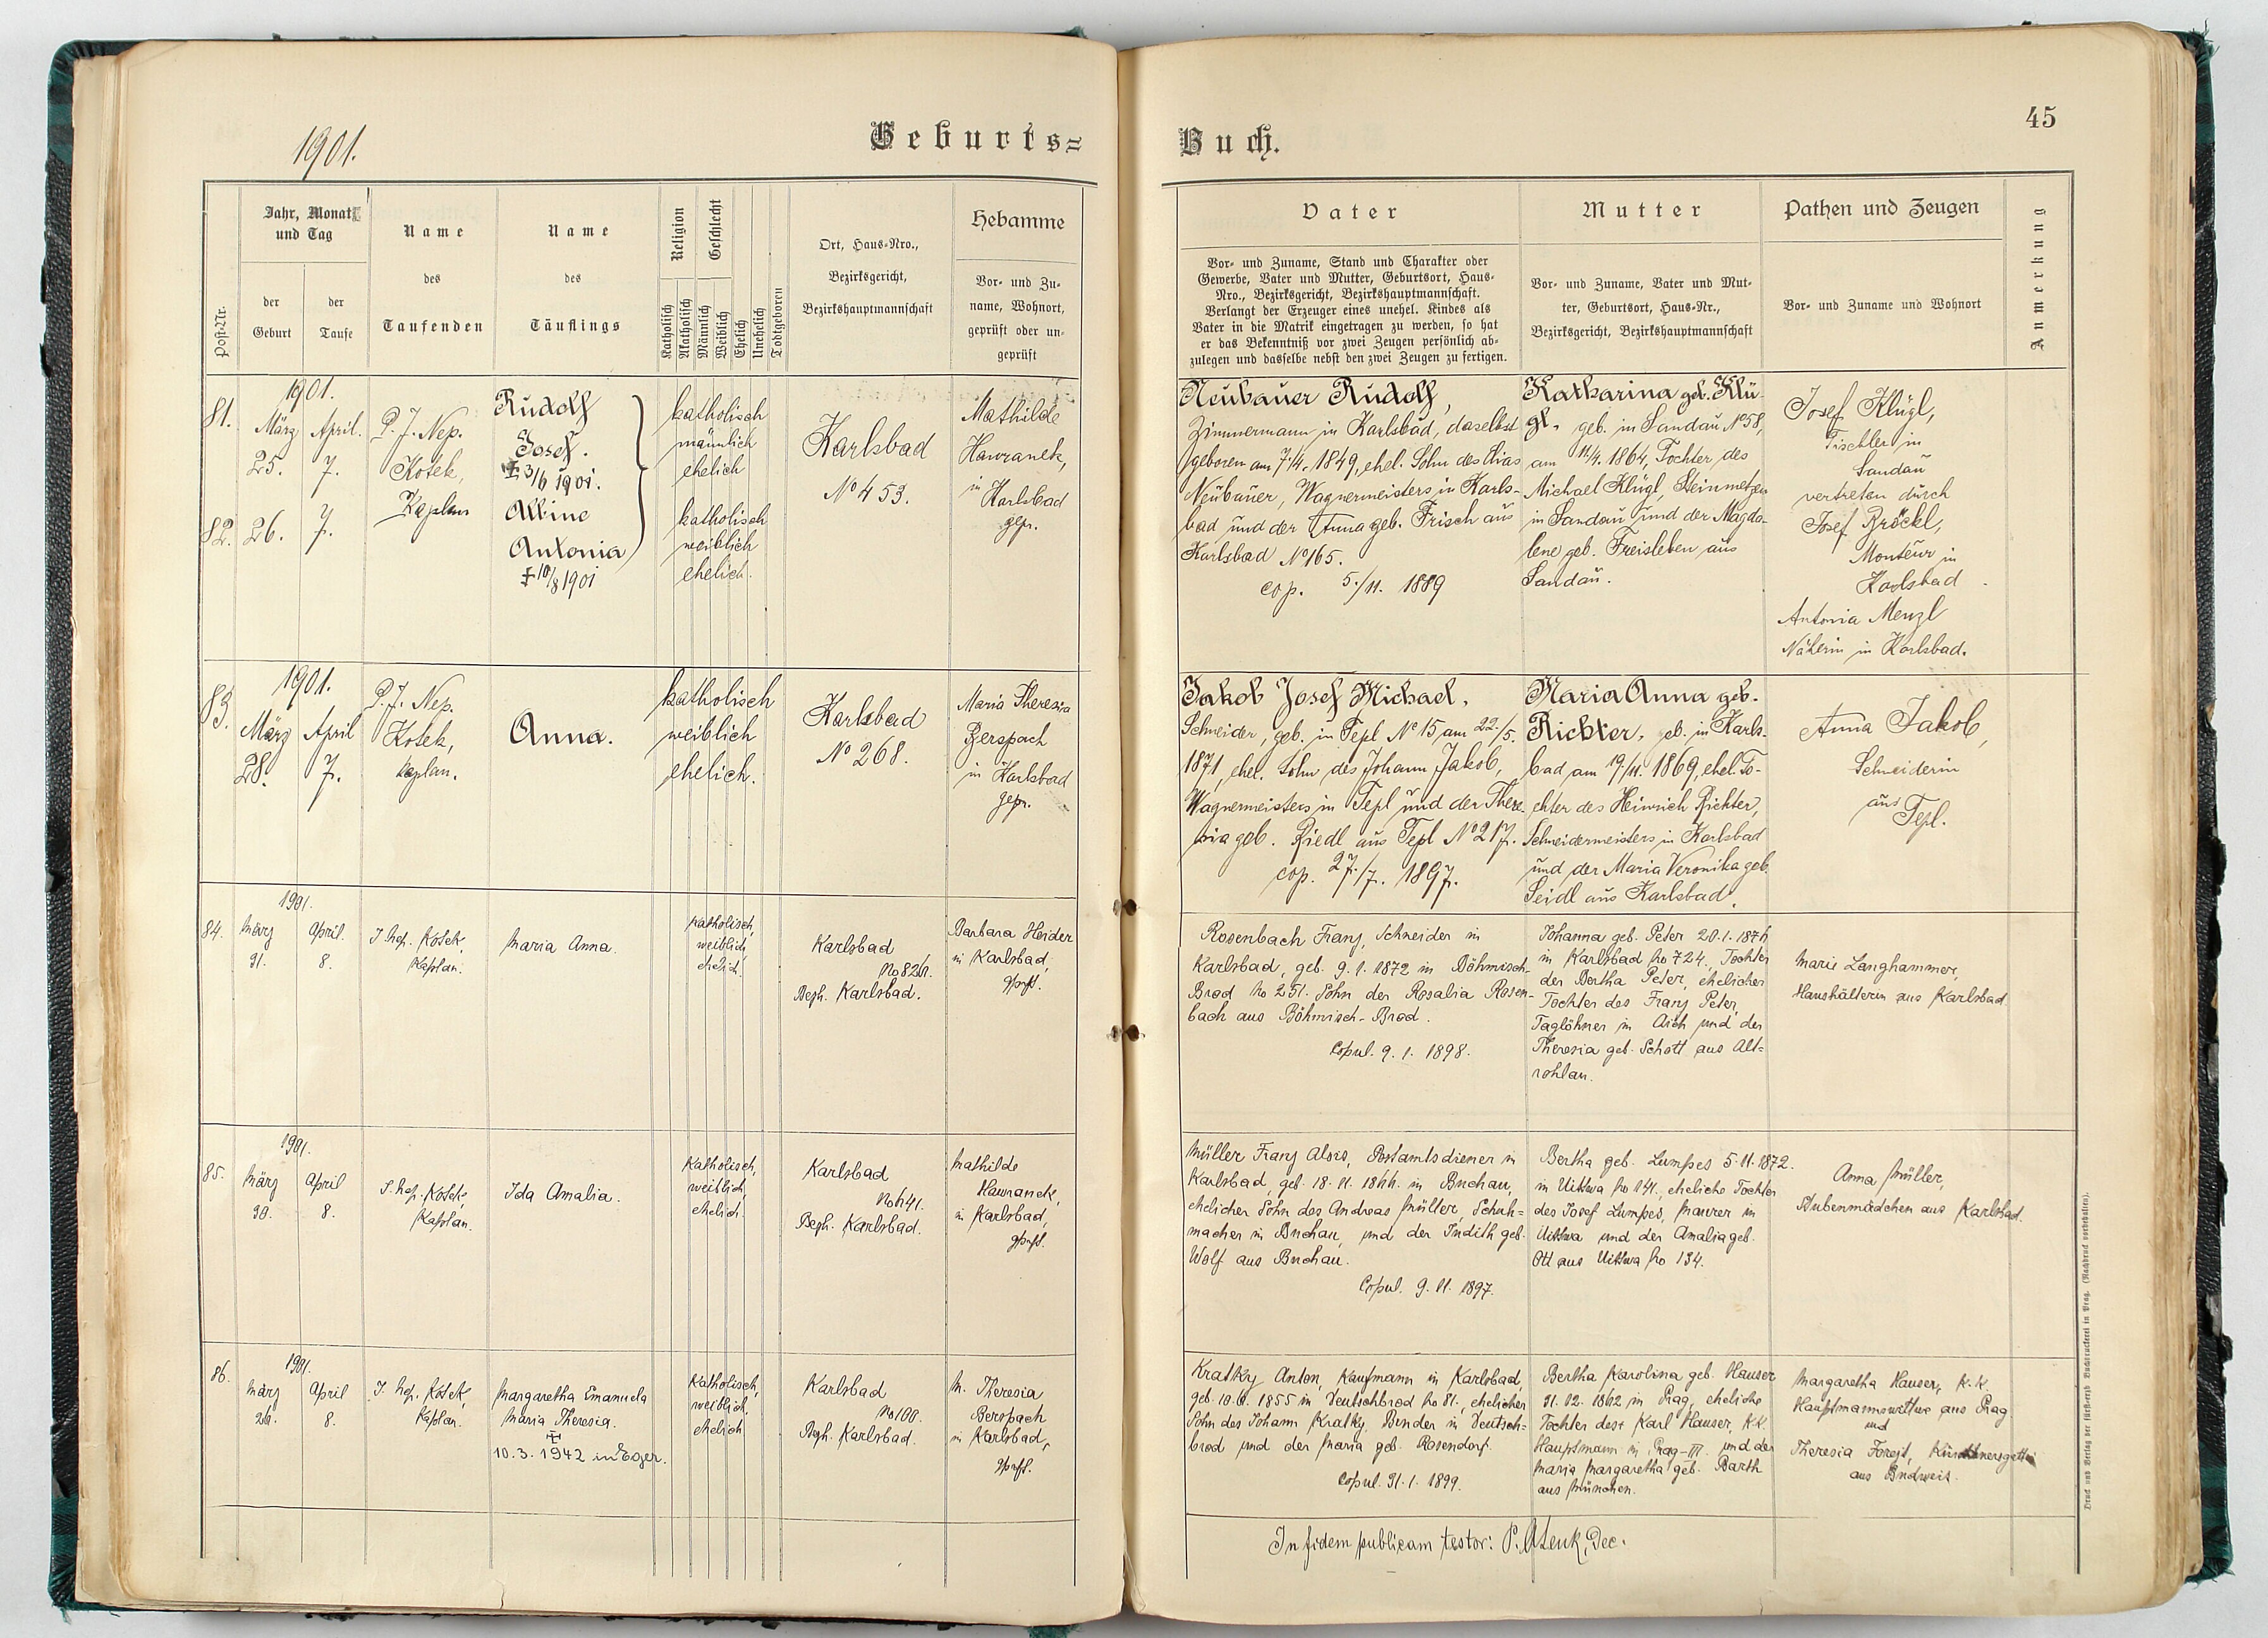 1901.
Geburts=
Buch.
45
Post-Nr.
Jahr, Monat
und Tag
der
Geburt
der
Taufe
Name
des
Taufenden
Name
des
Täuflings
Religion
Geschlecht
Katholisch
Akatholisch
Männlich
Weiblich
Ehelich
Unehelich
Todtgeboren
Ort, Haus-Nro.,
Bezirksgericht,
Bezirkshauptmannschaft
Hebamme
Vor- und Zu-
name, Wohnort,
geprüft oder un-
geprüft
Vater
Vor- und Zuname, Stand und Charakter oder
Gewerbe, Vater und Mutter, Geburtsort, Haus-
Nro., Bezirksgericht, Bezirkshauptmannschaft.
Verlangt der Erzeuger eines unehel. Kindes als
Vater in die Matrik eingetragen zu werden, so hat
er das Bekenntniß vor zwei Zeugen persönlich ab-
zulegen und dasselbe nebst den zwei Zeugen zu fertigen.
Mutter
Vor- und Zuname, Vater und Mut-
ter, Geburtsort, Haus-Nr.,
Bezirksgericht, Bezirkshauptmannschaft
Pathen und Zeugen
Vor- und Zuname und Wohnort
Anmerkung
81.
1901.
März
25.
April.
7.
P. J. Nep.
Kosek,
Kaplan
Rudolf
Josef.
‡ 3/6 1901.
katholisch
männlich
ehelich
82.
26.
7.
Albine
Antonia
‡ 10/8 1901
katholisch
weiblich
ehelich.
Karlsbad
No 453.
Mathilde
Hawranek,
in Karlsbad
gepr.
Neubauer Rudolf,
Zimmermann in Karlsbad, daselbst
geboren am 7./4. 1849, ehel. Sohn des Elias
Neubauer, Wagnermeisters in Karls-
bad und der Anna geb. Frisch aus
Karlsbad No 165.
cop. 5./11. 1889
Katharina geb. Klü-
gl, geb. in Sandau No 58,
am 11/4. 1864, Tochter des
Michael Klügl, Steinmetzen
in Sandau und der Magda-
lene geb. Freisleben aus
Sandau.
Josef Klügl,
Tischler in
Sandau
vertreten durch
Josef Bröckl,
Monteur in
Karlsbad
Antonia Menzl
Näherin in Karlsbad.
83.
1901.
März
28.
April
7.
P. J. Nep.
Kosek,
Kaplan.
Anna.
katholisch
weiblich
ehelich.
Karlsbad
No 268.
Maria Theresia
Berspach
in Karlsbad
gepr.
Jakob Josef Michael,
Schneider, geb. in Tepl No 15 am 22./5.
1871, ehel. Sohn des Johann Jakob,
Wagnermeisters in Tepl und der There-
sia geb. Riedl aus Tepl No 217.
cop. 27./7. 1897.
Maria Anna geb.
Richter, geb. in Karls-
bad am 19./11. 1869, ehel. To-
chter des Heinrich Richter,
Schneidermeisters in Karlsbad
und der Maria Veronika geb.
Seidl aus Karlsbad.
Anna Jakob,
Schneiderin
aus
Tepl.
84.
1901.
März
31.
April.
8.
J. Nep. Kosek,
Kaplan.
Maria Anna.
Katholisch,
weiblich,
ehelich.
Karlsbad
Bezh. Karlsbad.
Barbara Heider
in Karlsbad,
geprft.
Rosenbach Franz, Schneider in
Karlsbad, geb. 9. 1. 1872 in Böhmisch-
Brod No 251. Sohn der Rosalia Rosen-
bach aus Böhmisch-Brod.
Copul. 9. 1. 1898.
Johanna geb. Peter 20. 1. 1876
in Karlsbad No 724., Tochter
der Bertha Peter, ehelicher
Tochter des Franz Peter,
Taglöhner in Aich und der
Theresia geb. Schott aus Alt=
rohlau.
Marie Langhammer,
Haushälterin aus Karlsbad
85.
1901.
März
30.
April
8.
J. Nep. Kosek,
Kaplan.
Ida Amalia.
Katholisch,
weiblich,
ehelich.
Karlsbad
No 641.
Bezh. Karlsbad.
Mathilde
Hawranek,
in Karlsbad,
geprft.
Müller Franz Alois, Postamtsdiener in
Karlsbad, geb. 18. 11. 1866. in Buchau,
ehelicher Sohn des Andreas Müller, Schuh=
macher in Buchau, und der Judith geb.
Wolf aus Buchau.
Copul. 9. 11. 1897.
Bertha geb. Lumpes 5. 11. 1872.
in Uittwa No 141., eheliche Tochter
des Josef Lumpes, Maurer in
Uittwa und der Amalia geb.
Ott aus Uittwa No 134.
Anna Müller,
Stubenmädchen aus Karlsbad.
86.
1901.
März
26.
April
8.
J. Nep. Kosek,
Kaplan.
Margaretha Emanuela
Maria Theresia.
‡
10. 3. 1942 in Eger.
Katholisch,
weiblich,
ehelich
Karlsbad
No 100.
Bezh. Karlsbad.
M. Theresia
Berspach
in Karlsbad,
geprft.
Kratky Anton, Kaufmann in Karlsbad,
geb. 10. 6. 1855 in Deutschbrod No 81., ehelicher
Sohn des Johann Kratky, Binder in Deutsch=
brod und der Maria geb. Rosendorf.
Copul. 31. 1. 1899.
Bertha Karolina geb. Hauser
31. 12. 1862 in Prag, eheliche
Tochter des + Karl Hauser, K.K.
Hauptmann in Prag-III. und der
Maria Margaretha geb. Barth
aus München.
Margaretha Hauser, K.K.
Hauptmannswittwe aus Prag
und
Theresia Forejt, Kürschnersgattin
aus Budweis.
In fidem publicam testor: Dec.
Druck und Verlag der fürsterzb. Buchdruckerei in Prag. (Nachdruck vorbehalten).